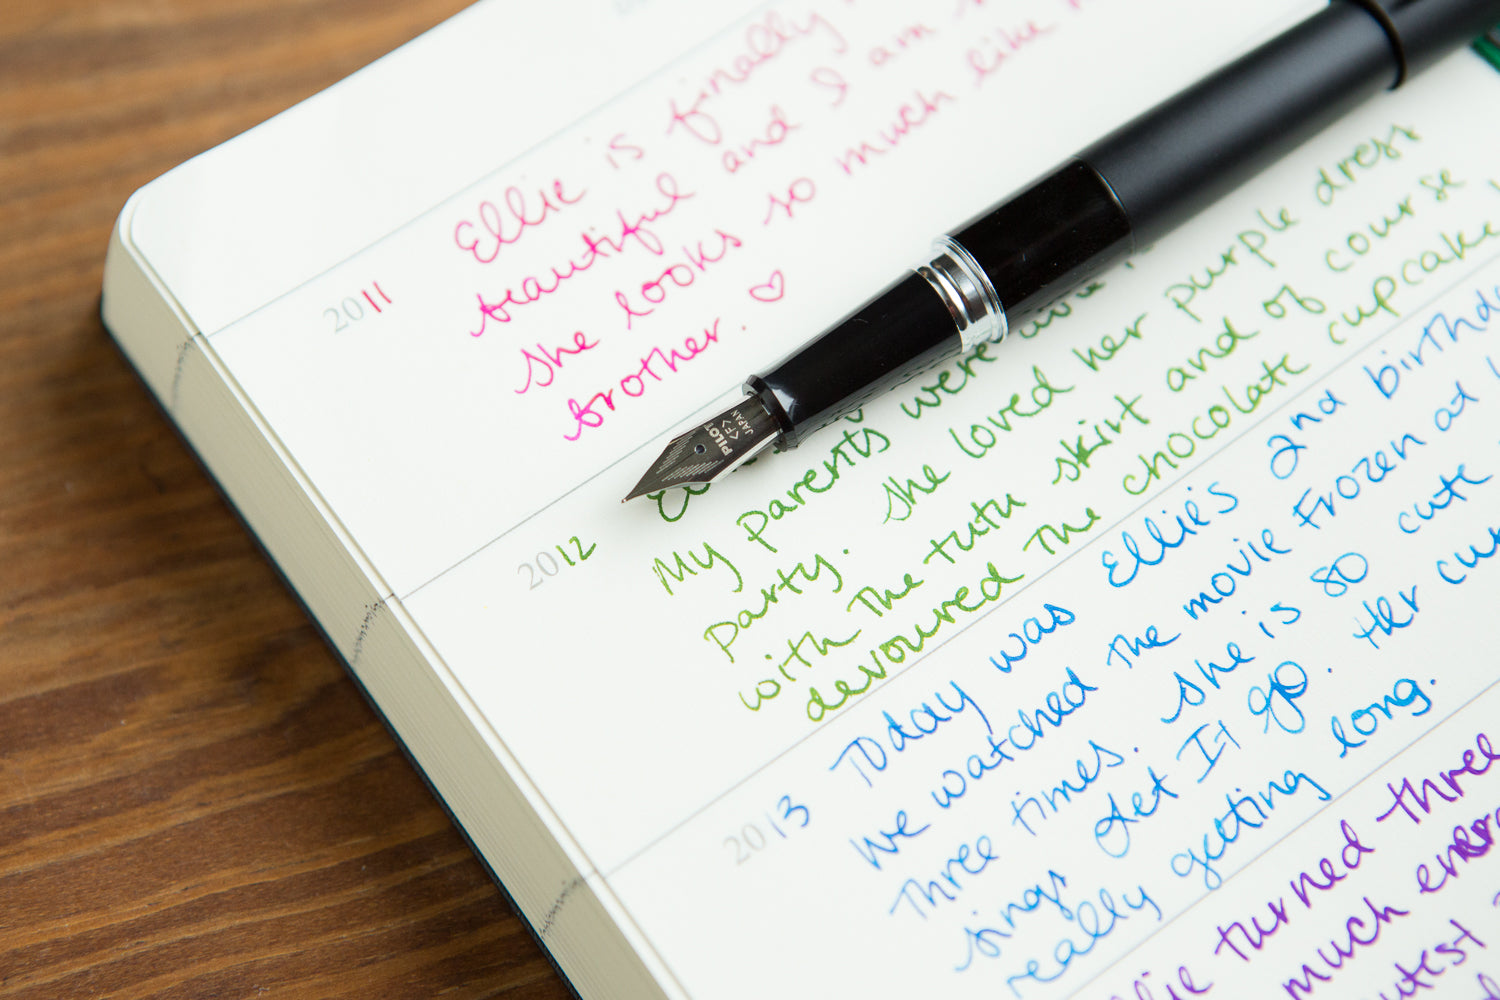 Ellie is finally
beautiful and I am
she looks so much like
brother. ♡
2011
My parents were
party. She loved her purple dress
with the tutu skirt and of course
devoured the chocolate cupcake
2012
Today was Ellie's 2nd birthday
We watched the movie Frozen at
three times. She is so cute
sings Let It go. Her
really getting long.
2013
turned three
much
PILOT
<F>
JAPAN